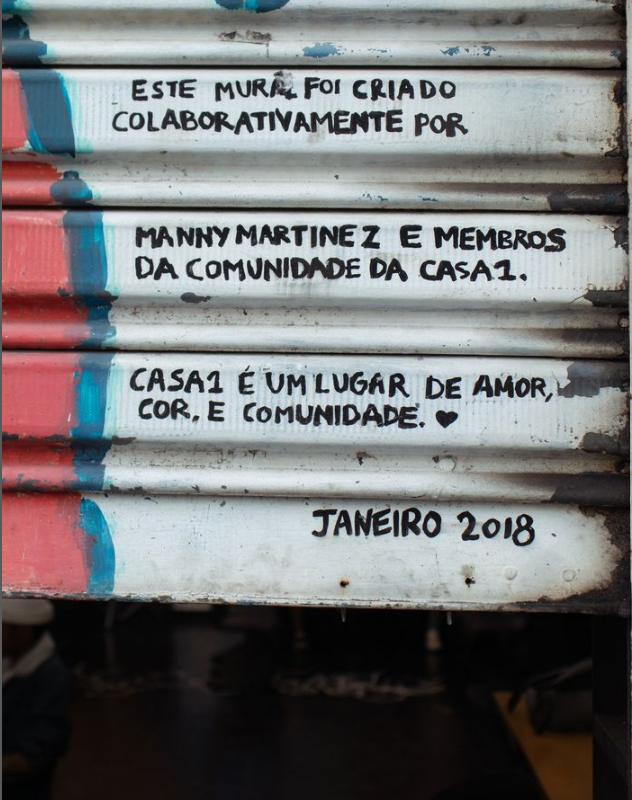 ESTE MURAL FOI CRIADO
COLABORATIVAMENTE POR
MANNY MARTINEZ E MEMBROS
DA COMUNIDADE DA CASA1.
CASA1 É UM LUGAR DE AMOR,
COR. E COMUNIDADE. ♥
JANEIRO 2018